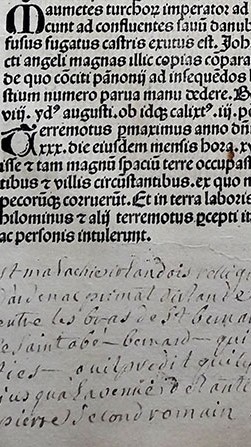 Maumetes turchorꝝ imperator ad
cunt ad confluentes sauū danub
fusus fugatus castris exutus est. Joh
cti angeli magnas illic copias copara
de quo cōciti pānonij ad insequēdos
stium numero parua manu dedere. B
viij. ydꝰ augusti. ob idqꝫ calixtꝰ. iij. p
Terremotus ꝑmaximus anno dn
xxx. die eiusdem mensis hora. xv
isse ⁊ tam magnū spaciū terre occupass
tibus ⁊ villis circūstantibus. ex quo n
pecorūqꝫ corruerūt. Et in terra laboris
hilominus ⁊ alij terremotus ꝑcepti it
ac personis intulerunt.
st malachie irlandois relig
entre les bras de st bernar
de saint abé - bernard - qui
il predit qu'il
pierre second romain